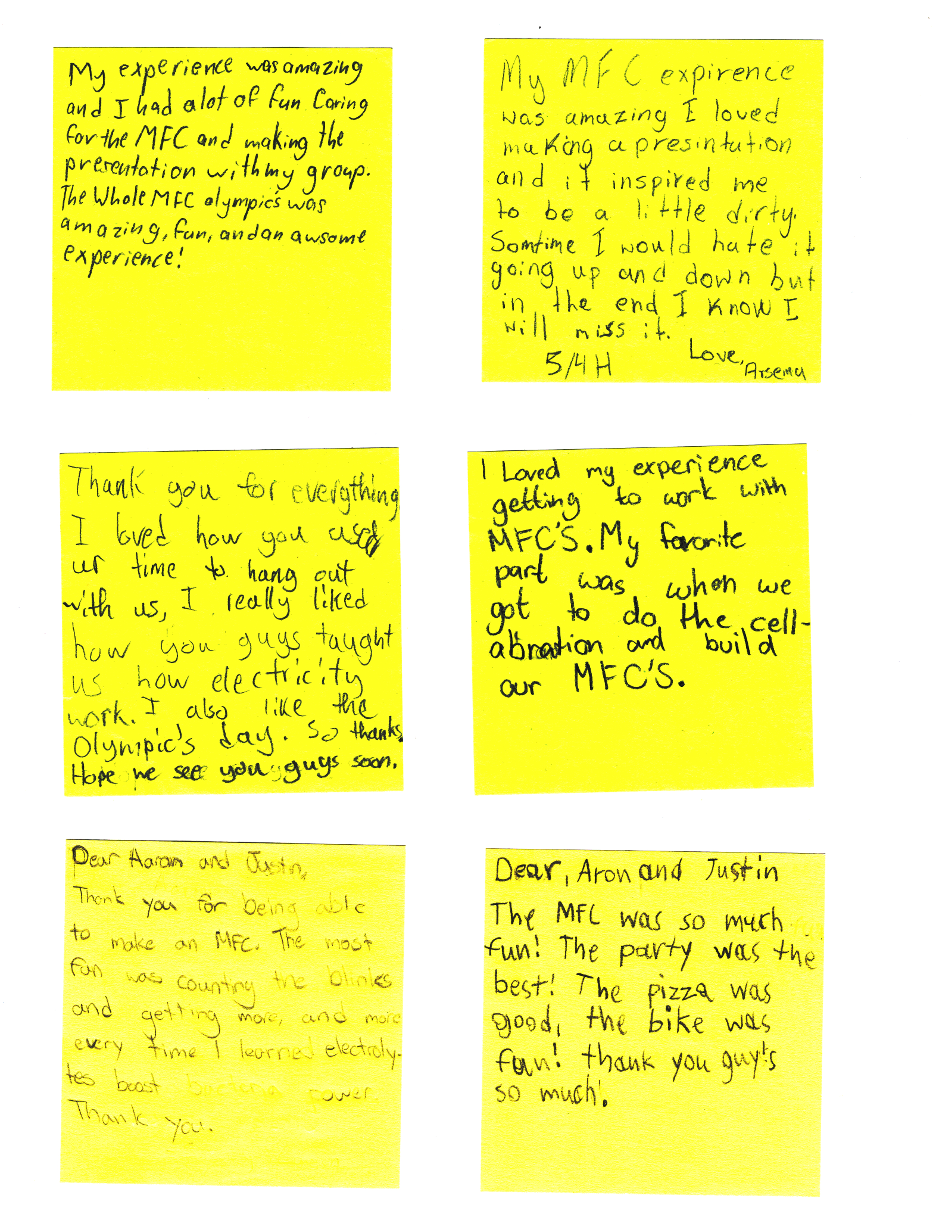 My experience was amazing
and I had alot of fun Caring
for the MFC and making the
presentation with my group.
The Whole MFC olympic's was
amazing, fun, and an awsome
experience!
My MFC expirence
was amazing I loved
making a presintation
and it inspired me
to be a little dirty.
Somtime I would hate it
going up and down but
in the end I know I
will miss it.
5/4 H
Love,
Arsema
Thank you for everything
I loved how you used
ur time to hang out
with us, I really liked
how you guys taught
us how electricity
work. I also like the
Olympic's day. So thanks
Hope we see you guys soon.
I Loved my experience
getting to work with
MFC'S. My favorite
part was when we
got to do the cell-
abration and build
our MFC'S.
Dear Aaron and Justin,
Thank you for being able
to make an MFC. The most
fun was counting the blinks
and getting more, and more
every time I learned electroly-
tes boost bacteria power
Thank you.
Dear, Aron and Justin
The MFC was so much
fun! The party was the
best! The pizza was
good, the bike was
fun! thank you guy's
so much!